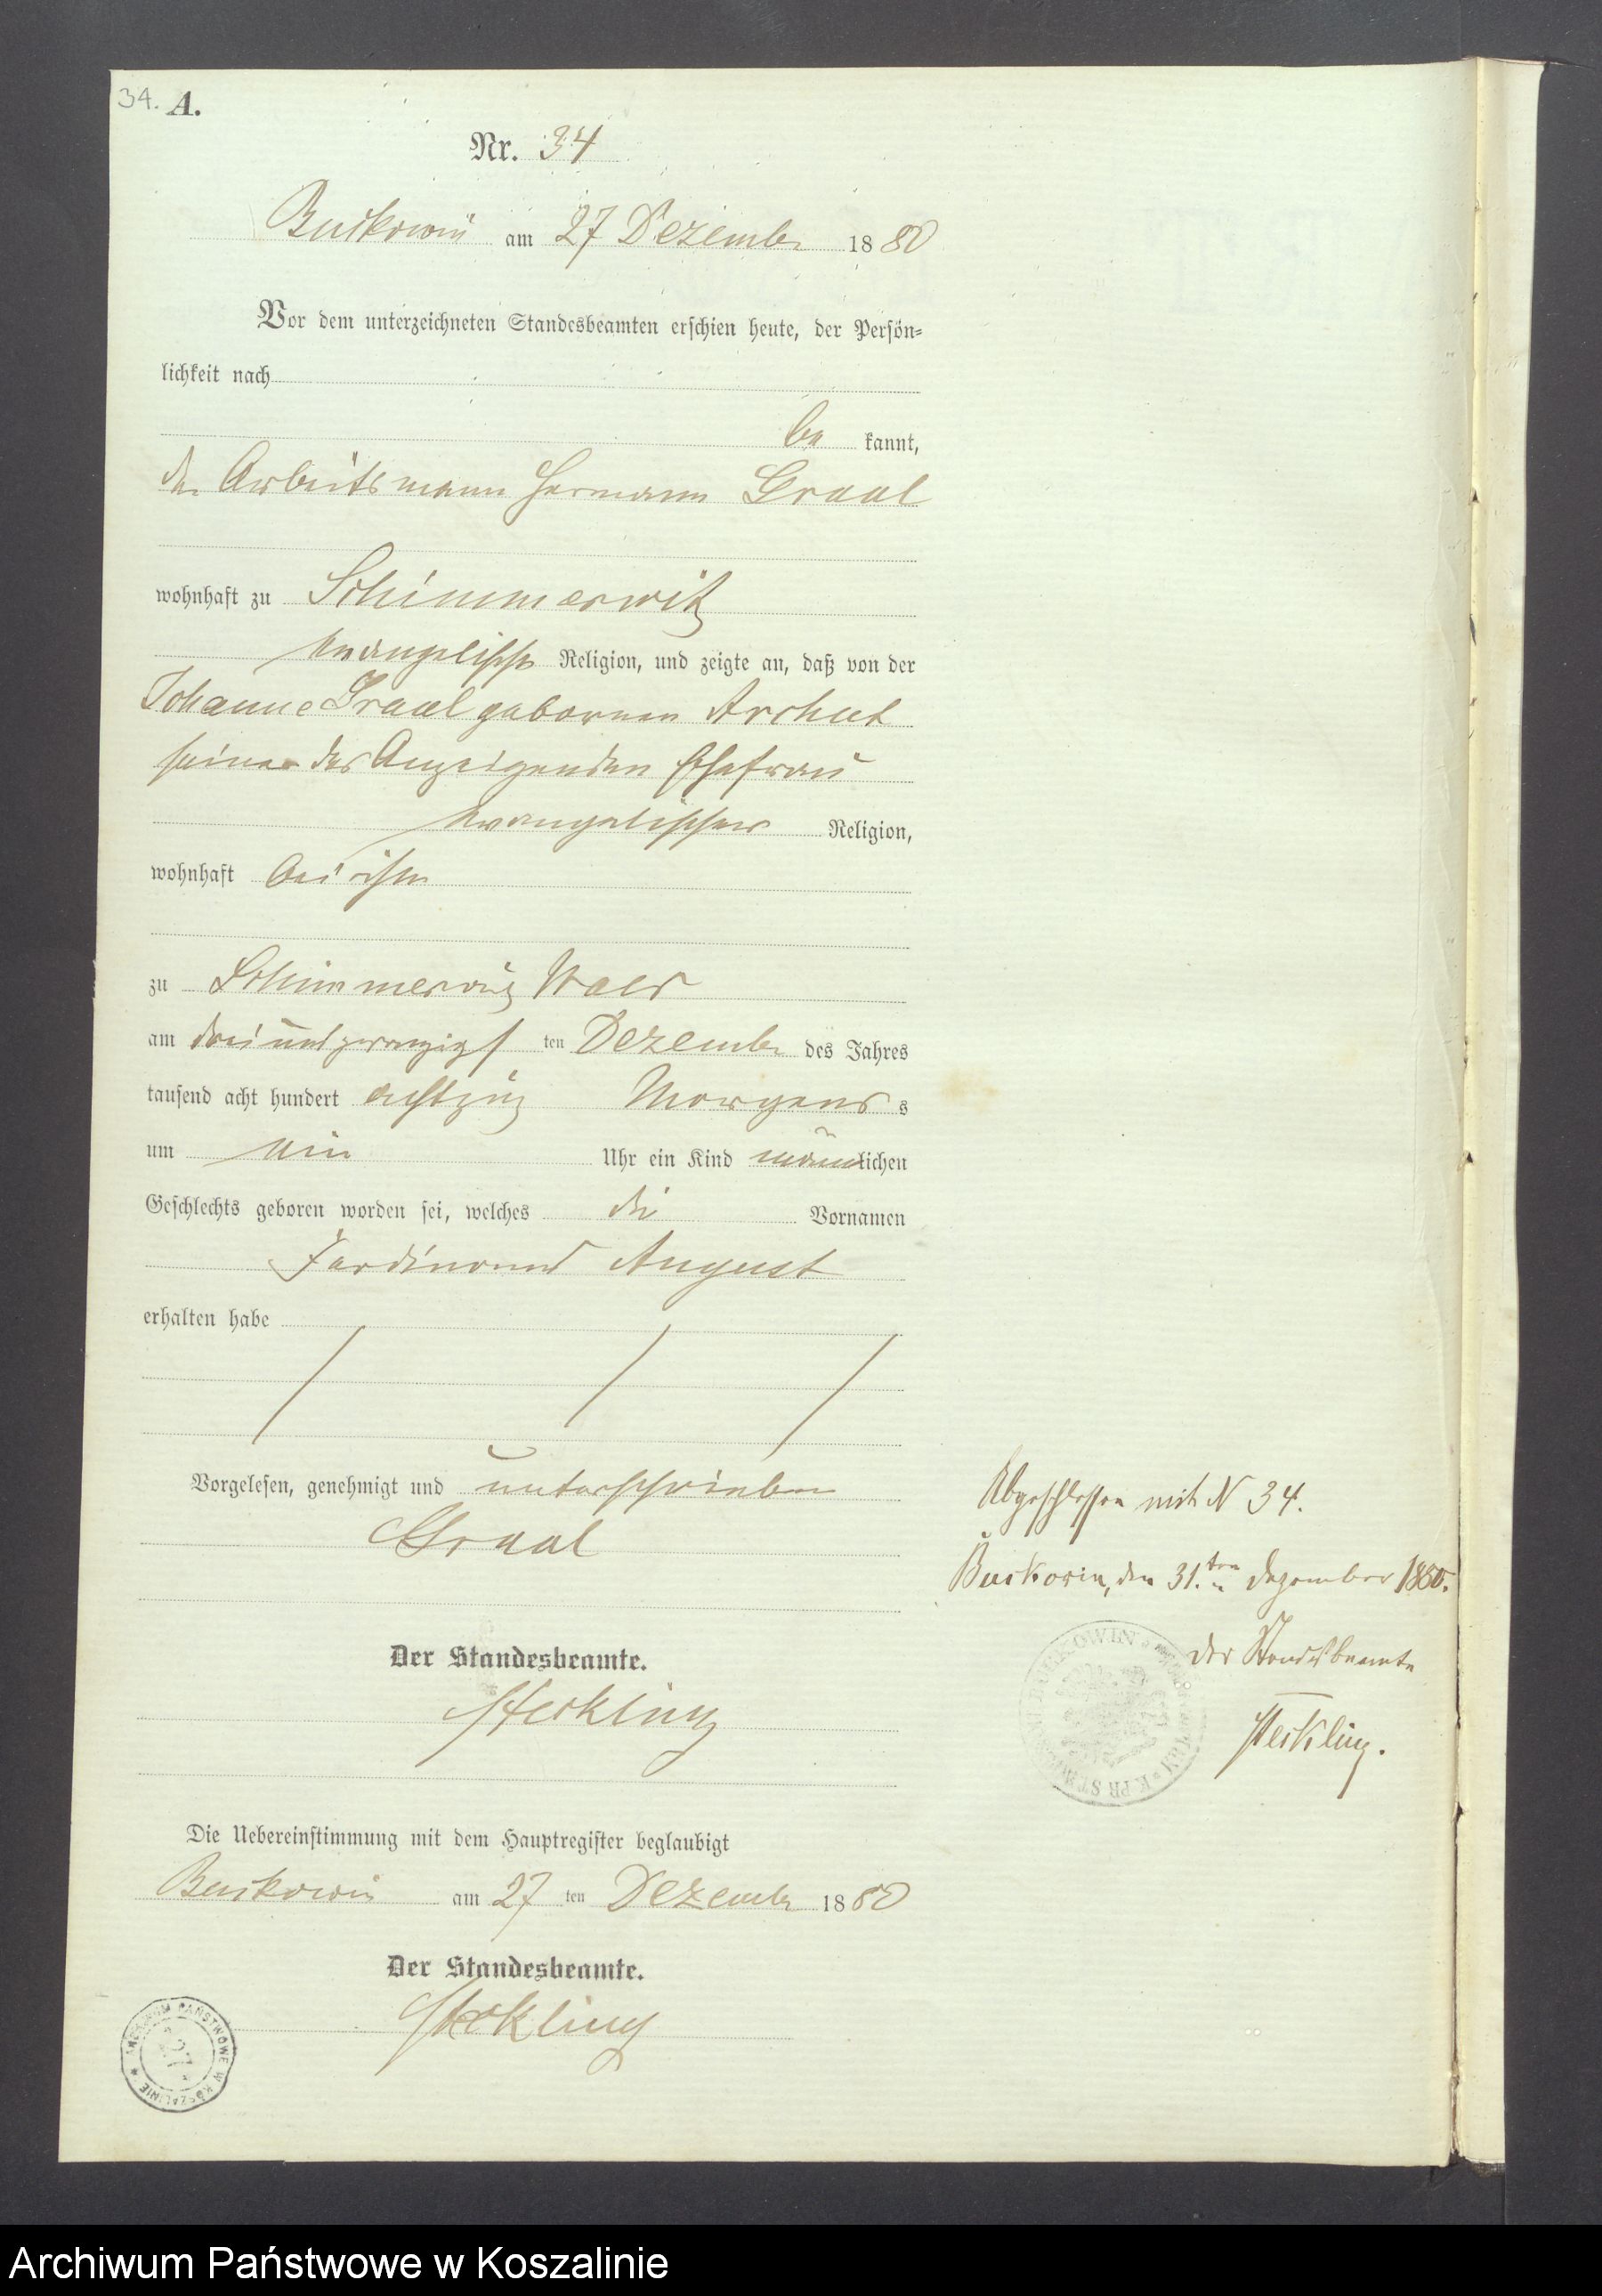 34. A.
Nr. 34
Buckowin am 27 Dezember 1880
Vor dem unterzeichneten Standesbeamten erschien heute, der Persön-
lichkeit nach
be kannt,
der Arbeitsmann Hermann Graal
wohnhaft zu Schimmerwitz
evangelischer Religion, und zeigte an, daß von der
Johanne Graal geborenen Archut
seiner des Anzeigenden Ehefrau
evangelischer Religion,
wohnhaft bei ihm
zu Schimmerwitz Wald
am drei und zwanzigs ten Dezember des Jahres
tausend acht hundert achtzig Morgens s
um ein Uhr ein Kind männlichen
Geschlechts geboren worden sei, welches die Vornamen
Ferdinand August
erhalten habe
Vorgelesen, genehmigt und unterschrieben
Graal
Der Standesbeamte.
Steckling
Die Uebereinstimmung mit dem Hauptregister beglaubigt
Buckowin am 27 ten Dezember 1880
Der Standesbeamte.
Steckling
Abgeschlossen mit N 34.
Buckowin, den 31. ten Dezember 1880.
Der Standesbeamte
Steckling.
ARCHIWUM PAŃSTWOWE W KOSZALINIE
27
Archiwum Państwowe w Koszalinie